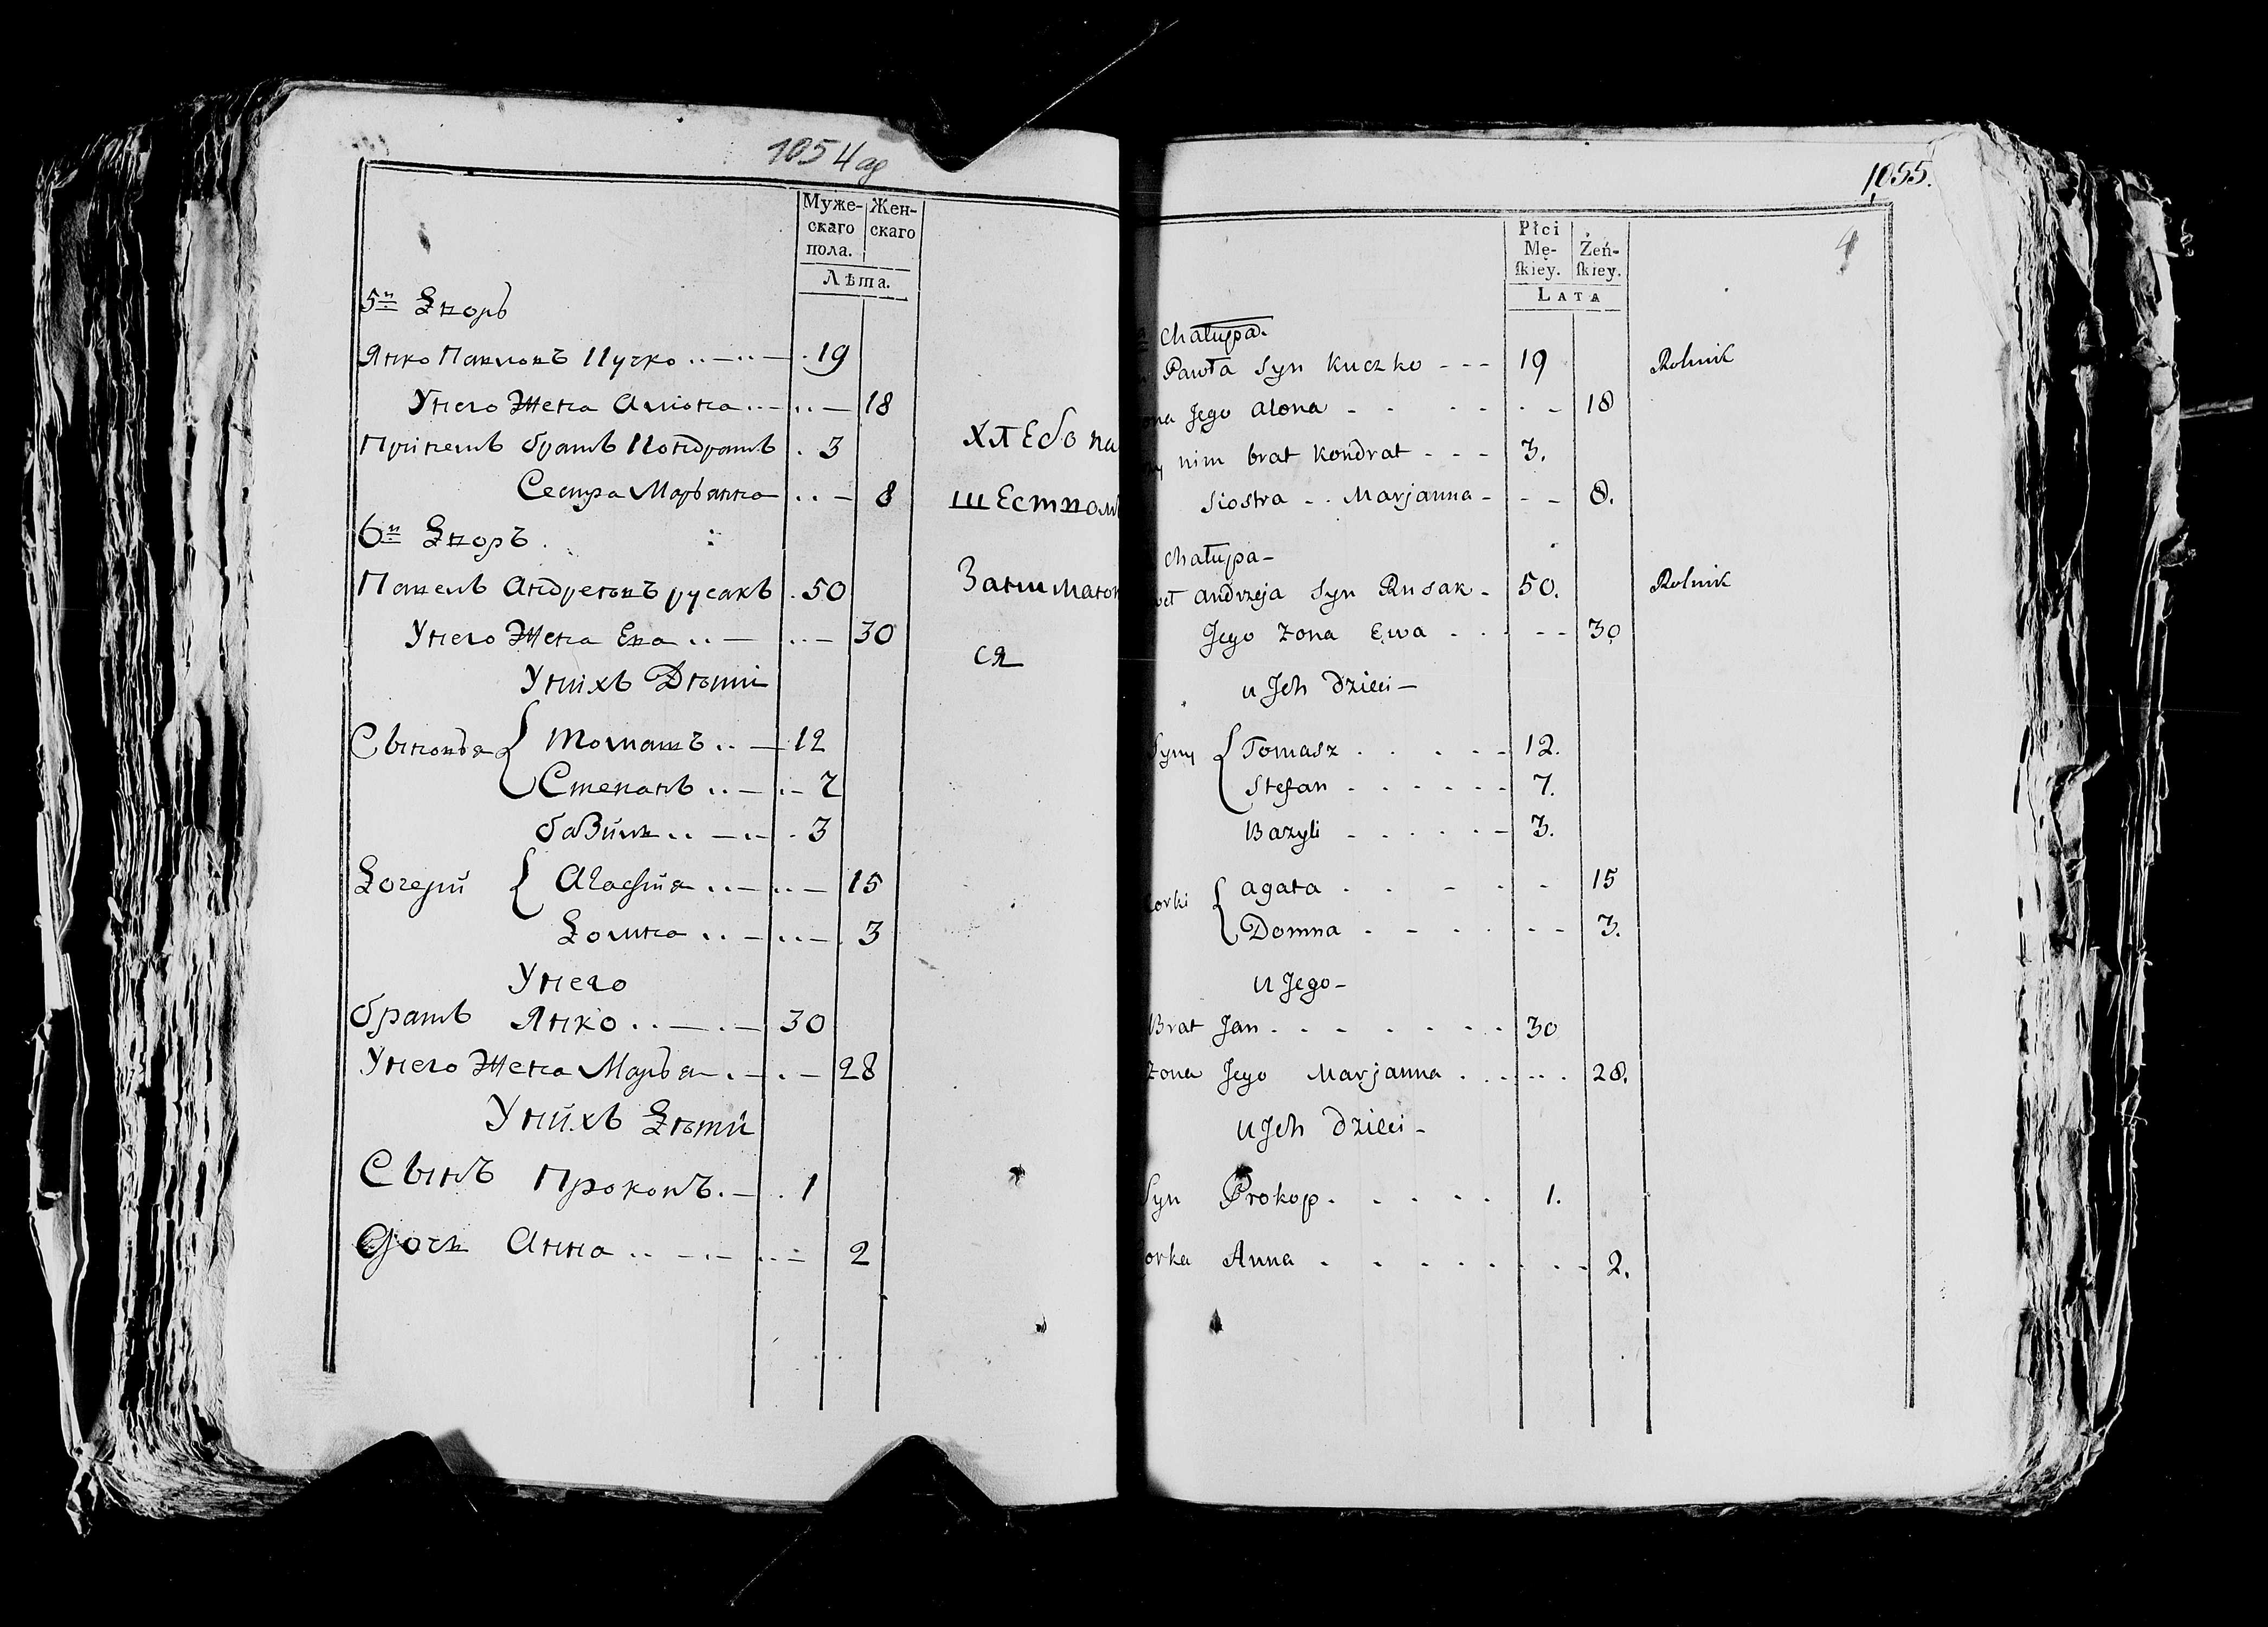 1054 об
Муже- Жен-
скаго скаго
пола.
Лѣта.
5й Дворъ
Янко Павловъ Кучко 19
У него Жена Алiона 18
При немъ братъ Кондратъ 3
Сестра Марьянна 8
6й Дворъ
Павелъ Андреевъ русакъ 50
У него Жена Ева 30
У нихъ Дѣти
Сыновья { Томашъ 12
Степанъ 7
15
Дочери { Агафия
Домна 3
У него
братъ Янко 30
У него Жена Марья 28
У нихъ Дѣти
Сынъ Прокопъ 1
Дочь Анна 2
ХлЕбо па
шЕством
Занимают
ся
1055.
Płci
Mę- Żeń-
ſkiey. ſkiey.
LATA
Chałupa.
Pawła Syn Kuczko 19 Rolnik
Jego Alona 18
nim brat Kondrat 3.
Siostra Marjanna 8.
Chałupa
andrzeja Syn Rusak 50. Rolnik
Jego Zona Ewa 30
u Jch Dzieci
Syny { Tomasz 12.
Stefan 7.
Bazyli 3.
{ agata 15
Domna 3.
u Jego
Brat Jan 30
Zona Jego Marjanna 28.
u Jch Dzieci
Syn Prokop 1.
Anna 2.